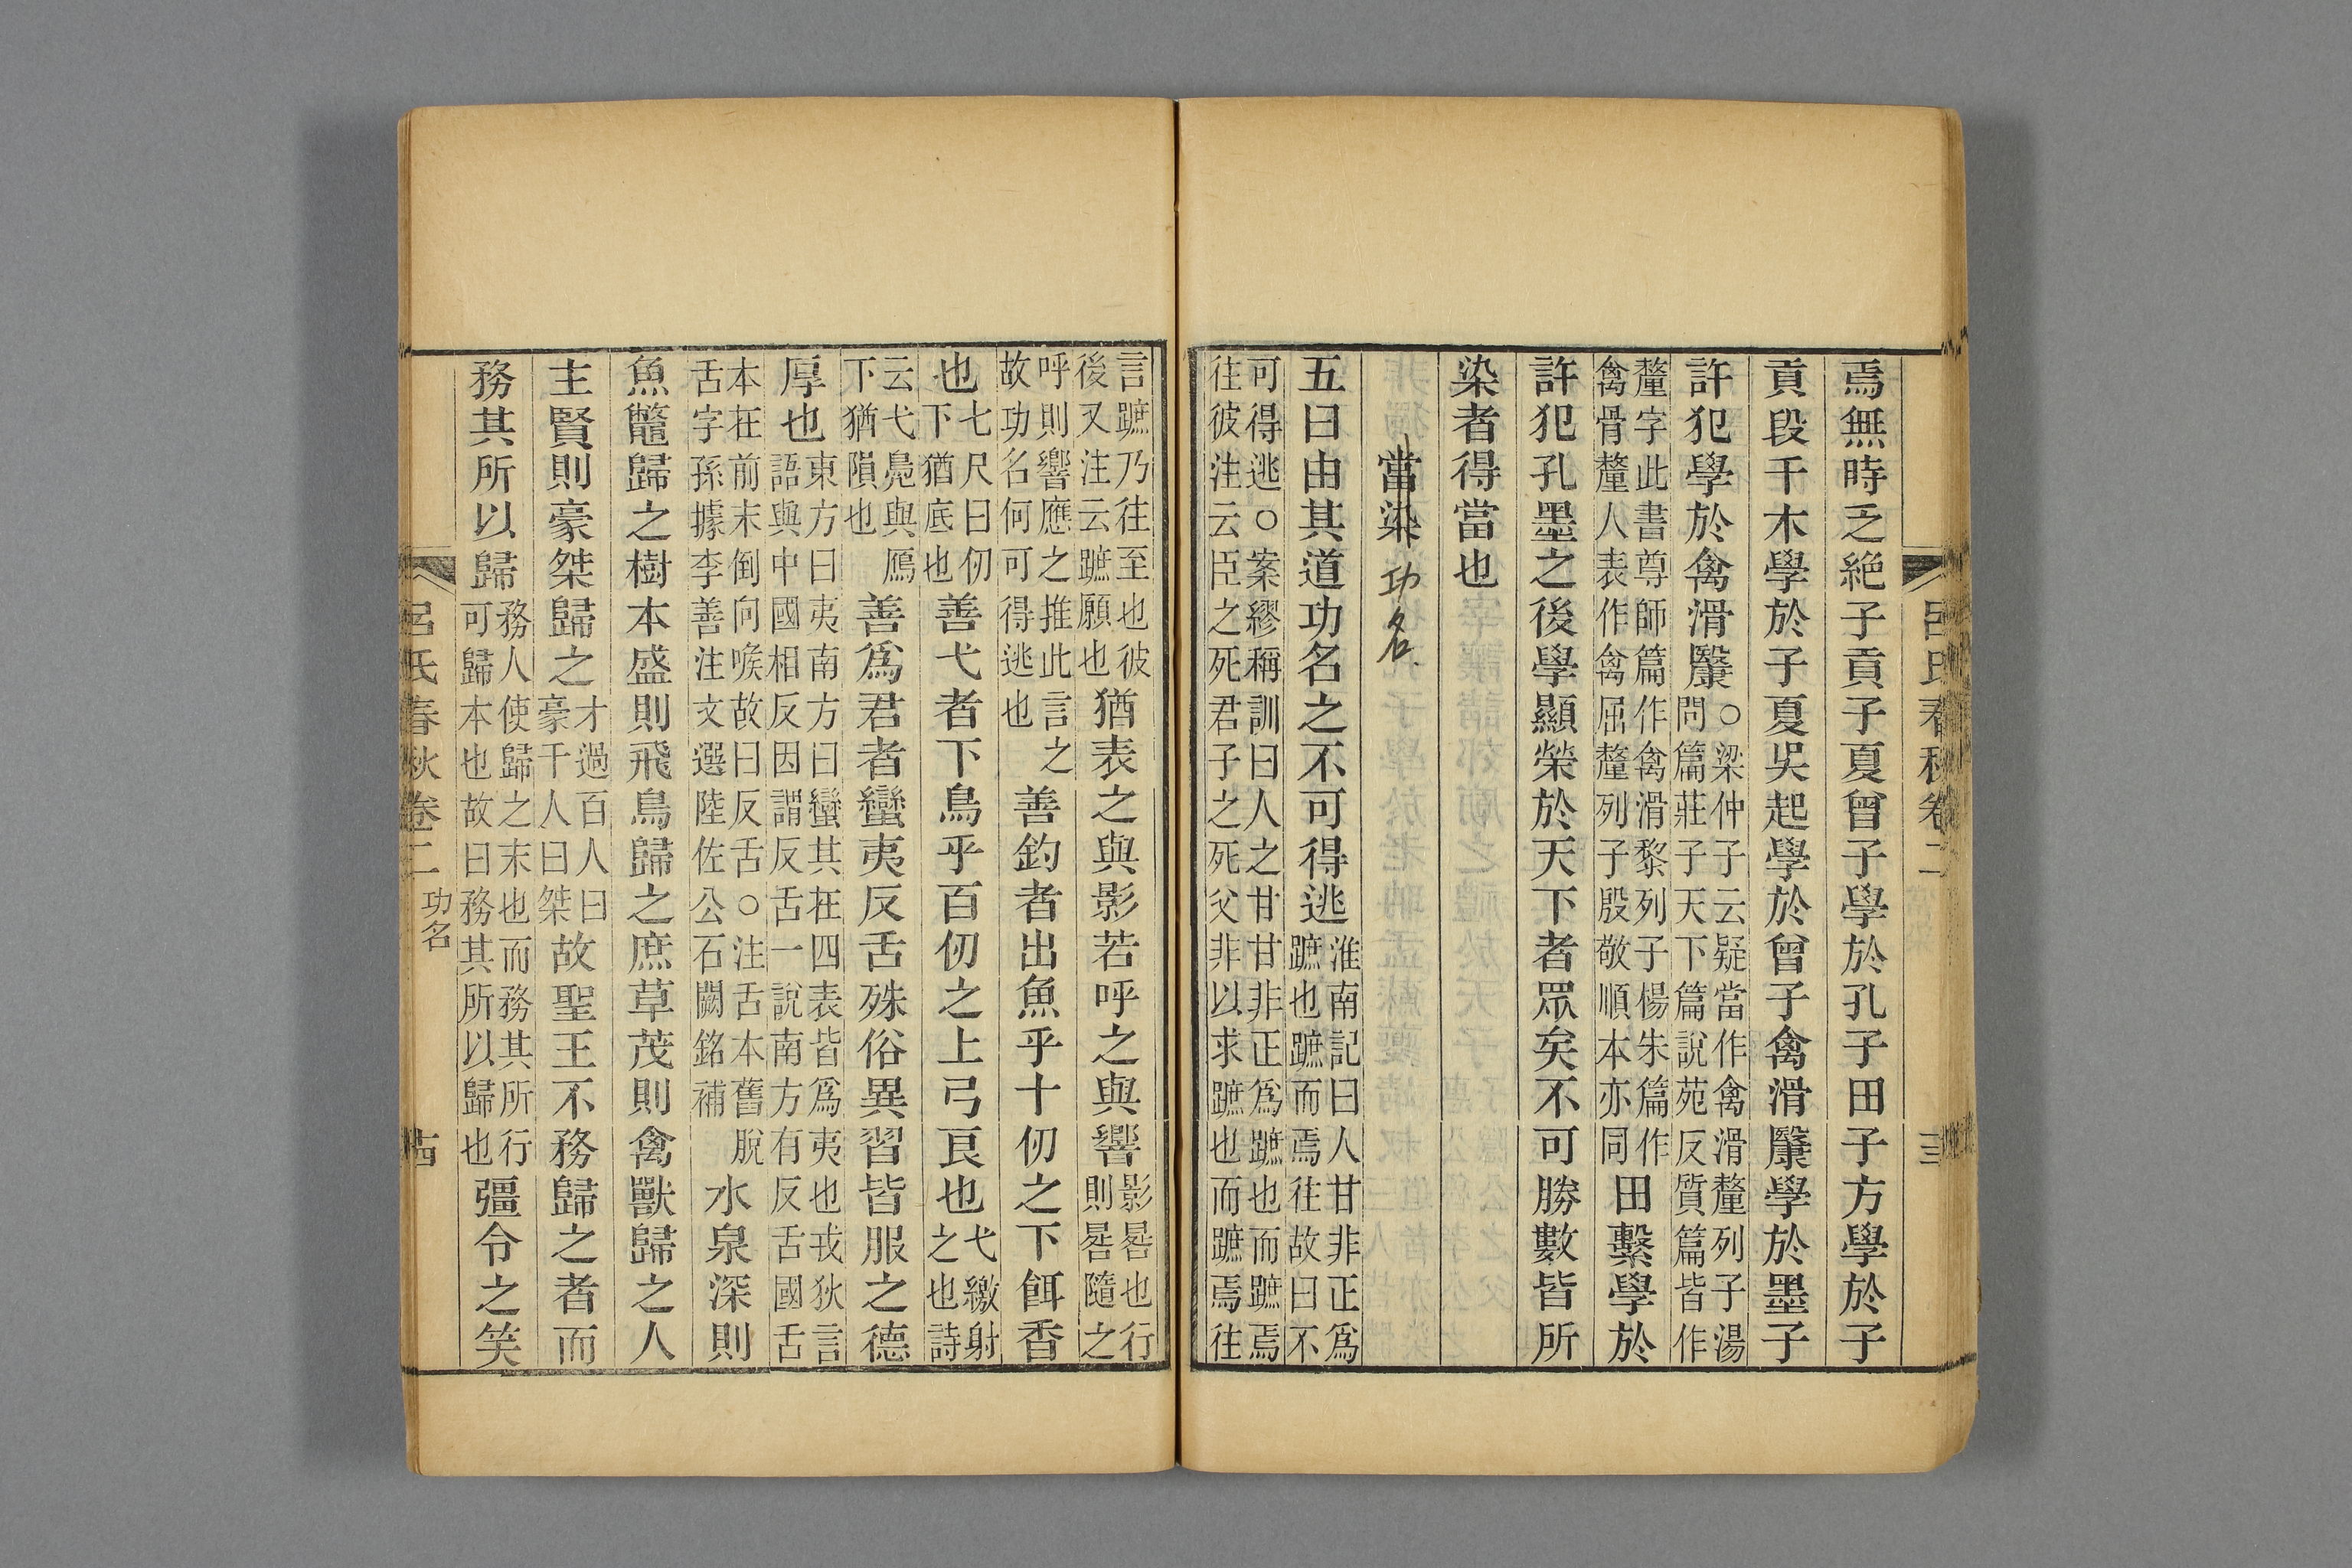 呂氏春秋卷二
三
焉無時乏絶子貢子夏曾子學於孔子田子方學於子
貢段干木學於子夏吳起學於曾子禽滑釐學於墨子
許犯學於禽滑釐○梁仲子云疑當作禽滑釐列子湯
問篇莊子天下篇說苑反質篇皆作
釐字此書尊師篇作禽滑黎列子楊朱篇作
禽骨釐人表作禽屈釐列子殷敬順本亦同田繫學於
許犯孔墨之後學顯榮於天下者眾矣不可勝數皆所
染者得當也
當染 功名
五曰由其道功名之不可得逃淮南記曰人甘非正爲
蹠也蹠而焉往故曰不
可得逃○案繆稱訓曰人之甘甘非正爲蹠也而蹠焉
往彼注云臣之死君子之死父非以求蹠也而蹠焉往
言蹠乃往至也彼
後又注云蹠願也猶表之與影若呼之與響影晷也行
則晷隨之
呼則響應之推此言之
故功名何可得逃也善釣者出魚乎十仞之下餌香
也七尺曰仞
下猶底也善弋者下鳥乎百仞之上弓良也弋繳射
之也詩
云弋鳧與鴈
下猶隕也善爲君者蠻夷反舌殊俗異習皆服之德
厚也東方曰夷南方曰蠻其在四表皆爲夷也戎狄言
語與中國相反因謂反舌一說南方有反舌國舌
本在前末倒向喉故曰反舌○注舌本舊脫
舌字孫據李善注文選陸佐公石闕銘補水泉深則
魚鼈歸之樹木盛則飛鳥歸之庶草茂則禽獸歸之人
主賢則豪桀歸之才過百人曰
豪千人曰桀故聖王不務歸之者而
務其所以歸務人使歸之末也而務其所行
可歸本也故曰務其所以歸也彊令之笑
呂氏春秋卷二 功名
十四